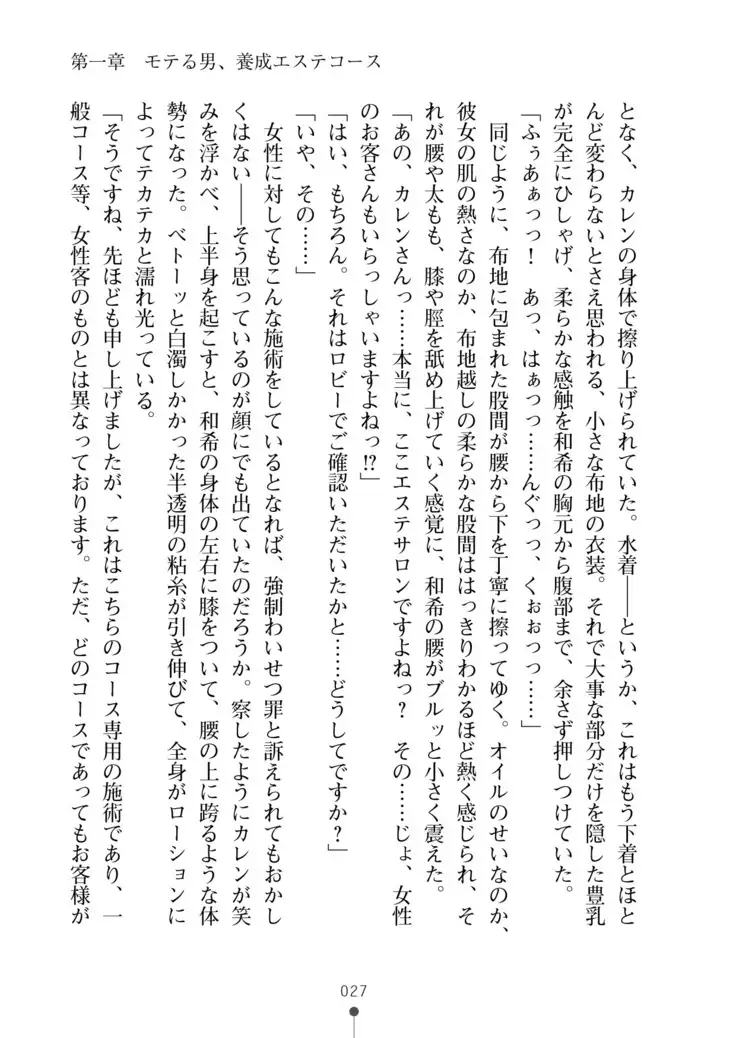 第一章　モテる男、養成エステコース
となく、カレンの身体で擦り上げられていた。水着――というか、これはもう下着とほと
んど変わらないとさえ思われる、小さな布地の衣装。それで大事な部分だけを隠した豊乳
が完全にひしゃげ、柔らかな感触を和希の胸元から腹部まで、余さず押しつけていた。
「ふぅあぁっっ！　あっ、はぁっっ……んぐっっ、くぉぉっっ……」
同じように、布地に包まれた股間が腰から下を丁寧に擦ってゆく。オイルのせいなのか、
彼女の肌の熱さなのか、布地越しの柔らかな股間ははっきりわかるほど熱く感じられ、そ
れが腰や太もも、膝や脛を舐め上げていく感覚に、和希の腰がブルッと小さく震えた。
「あの、カレンさんっ……本当に、ここエステサロンですよねっ？　その……じょ、女性
のお客さんもいらっしゃいますよねっ!?」
「はい、もちろん。それはロビーでご確認いただいたかと……どうしてですか？」
「いや、その……」
女性に対してもこんな施術をしているとなれば、強制わいせつ罪と訴えられてもおかし
くはない――そう思っているのが顔にでも出ていたのだろうか。察したようにカレンが笑
みを浮かべ、上半身を起こすと、和希の身体の左右に膝をついて、腰の上に跨るような体
勢になった。ベトーッと白濁しかかった半透明の粘糸が引き伸びて、全身がローションに
よってテカテカと濡れ光っている。
「そうですね、先ほども申し上げましたが、これはこちらのコース専用の施術であり、一
般コース等、女性客のものとは異なっております。ただ、どのコースであってもお客様が
027